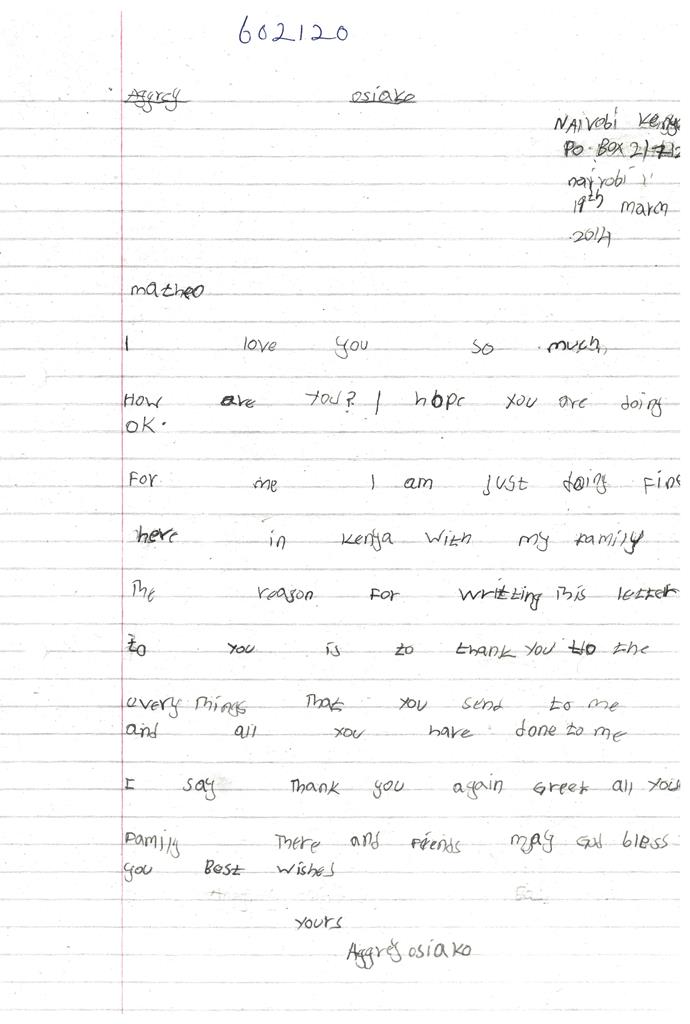 602120
Aggrey osiako
NAIVobi Kenya
Po Box 21712
nairobi
19th march
2014
matheo
I love you so much,
How are you? I hope you are doing
OK.
For me I am just doing Fine
here in Kenya With my Family
The reason For writting This letter
to you is to thank you to the
every Things That you send to me
and all you have done to me
I say Thank you again Greet all you
Family There and Friends may God bless
you Best Wishes
yours
Aggrey osiako